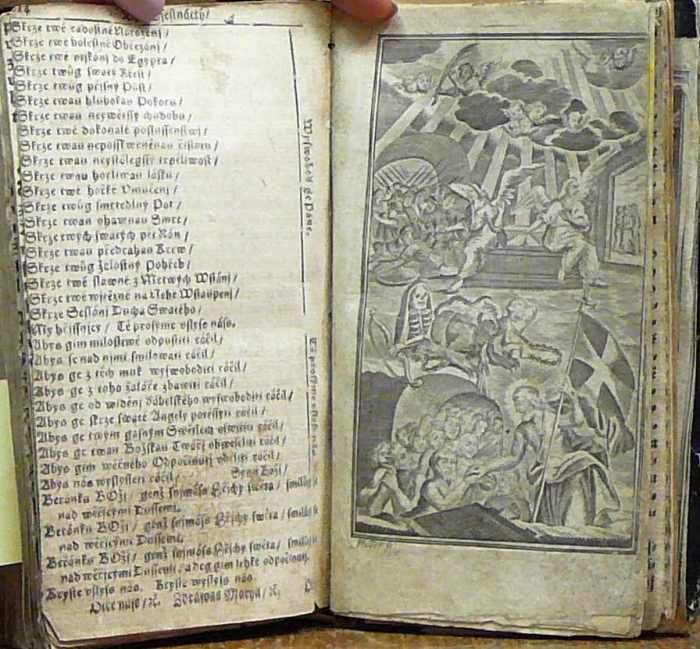 Skrze twé radostné Narozenj /
Skrze twé bolestné Obřezánj /
Skrze twé do Egypta /
Skrze twůg swatý Křest /
Skrze twůg přjsný Půst /
Skrze twau hlubokau Pokoru /
Skrze twau neywětssý chudobu /
Skrze twé dokonalé poslussenstwj /
Skrze twau neposskwrněnau čistotu /
Skrze twau trpeliwost /
Skrze twau horliwau lásku /
Skrze twé hořké Umučenj /
Skrze twůg smrtedlný Pot /
Skrze twau ohawnau Smrt /
Skrze twých swatých pět Ran /
Skrze twau předrahau Krew /
Skrze twůg žalostný Pohřeb /
Skrze twé slawné z Mrtwých Wstánj /
Skrze twé wjtězné na Nebe Wstaupenj /
Skrze Seslánj Ducha Swatého /
My hřjssnjcy / Tě prosyme vslyš nás.
Abys gim milostiwě odpustiti ráčil /
Abys se nad nimi smilowati ráčil /
Abys ge z těch muk wyswoboditi ráčil /
Abys ge z toho žaláře zbawiti ráčil /
Abys ge od widěnj ďábelského wyswoboditi ráčil /
Abys ge skrze swaté Angely potěssyti ráčil /
Abys ge twým gasným Swětlem oswjtiti ráčil /
Abys ge twau Božskau Twářj obweseliti ráčil /
Abys gim wěčného Odpočinutj vděliti ráčil /
Abys nás wyslysseti ráčil / Synu Božj /
Beránku BOžj / genž snjmáš Hřjchy swěta / smilůg se
nad wěřjcými Dussemi.
Beránku BOžj / genž snjmáš Hřjchy swěta / smilůg se
nad wěřjcými Dussemi.
Beránku BOžj / genž snjmáš Hřjchy swěta / smilůg se
nad wěřjcými Dussemi / a deg gim lehké odpočinutj.
Kryste vslyš nás. Kryste wyslyš nás
Otče náš / ꝛc. Zdráwas Marya / ꝛc.
Wyswoboď ge Pane.
Tě prosyme vslyš nás.